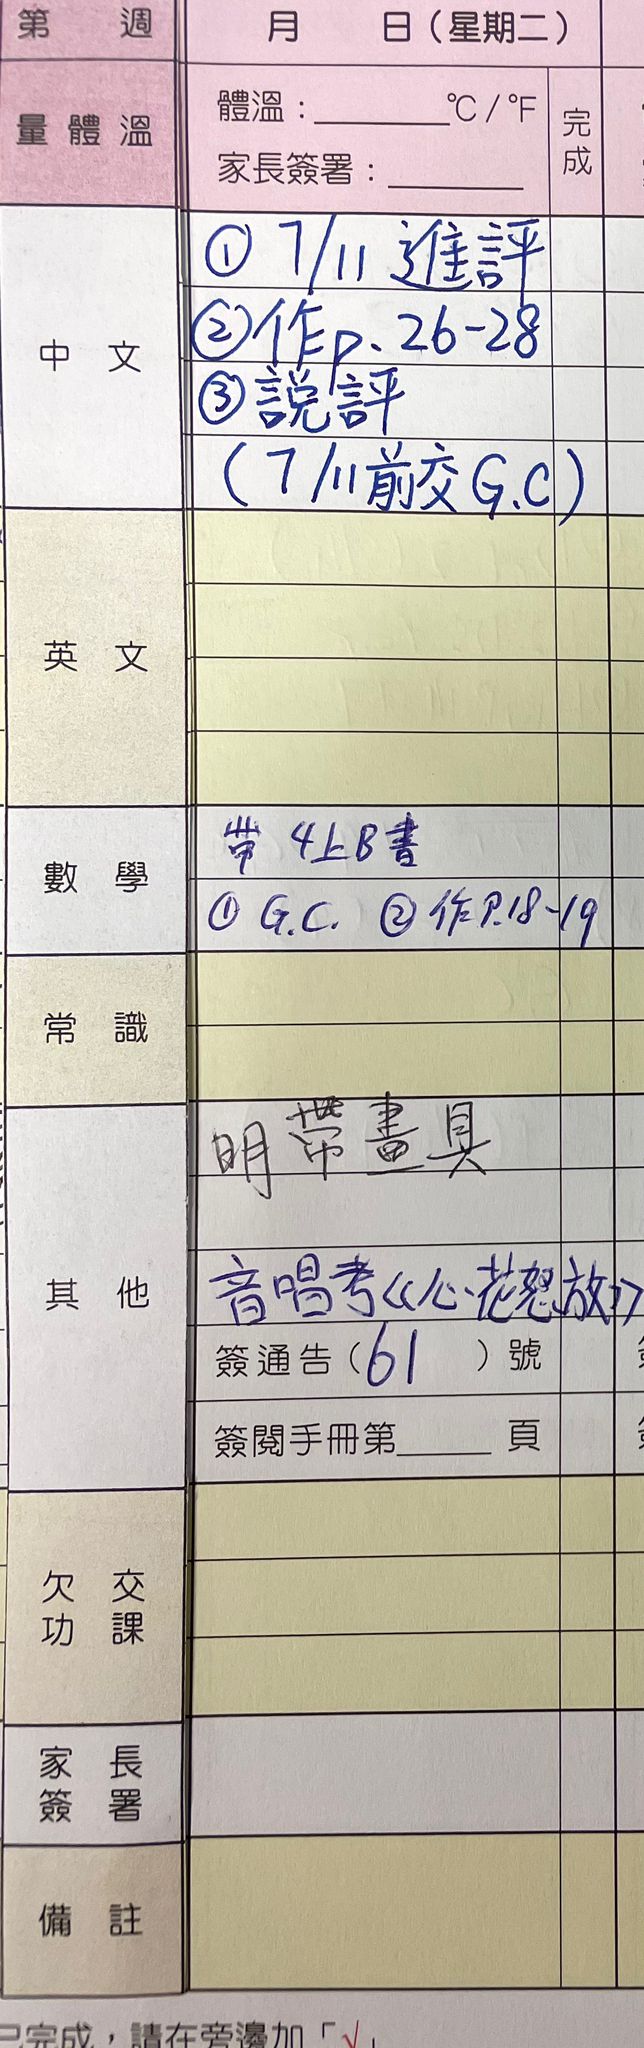 第 週 月 日（星期二）
量體溫 體溫：________℃/℉ 完成
家長簽署：________
中文 ① 7/11 進評
② 作p. 26-28
③ 説評
(7/11前交 G.C)
英文
數學 帶 4上B書
① G.C. ② 作P.18-19
常識
其他 明帶畫具
音唱考《心花怒放》
簽通告（61）號
簽閱手冊第_____頁
欠交功課
家長簽署
備註
已完成，請在旁邊加「√」